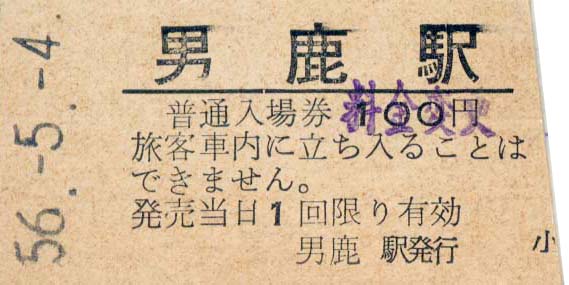 56.-5.-4.
男鹿駅
普通入場券 100円
料金変更
旅客車内に立ち入ることは
できません。
発売当日1回限り有効
男鹿 駅発行
小